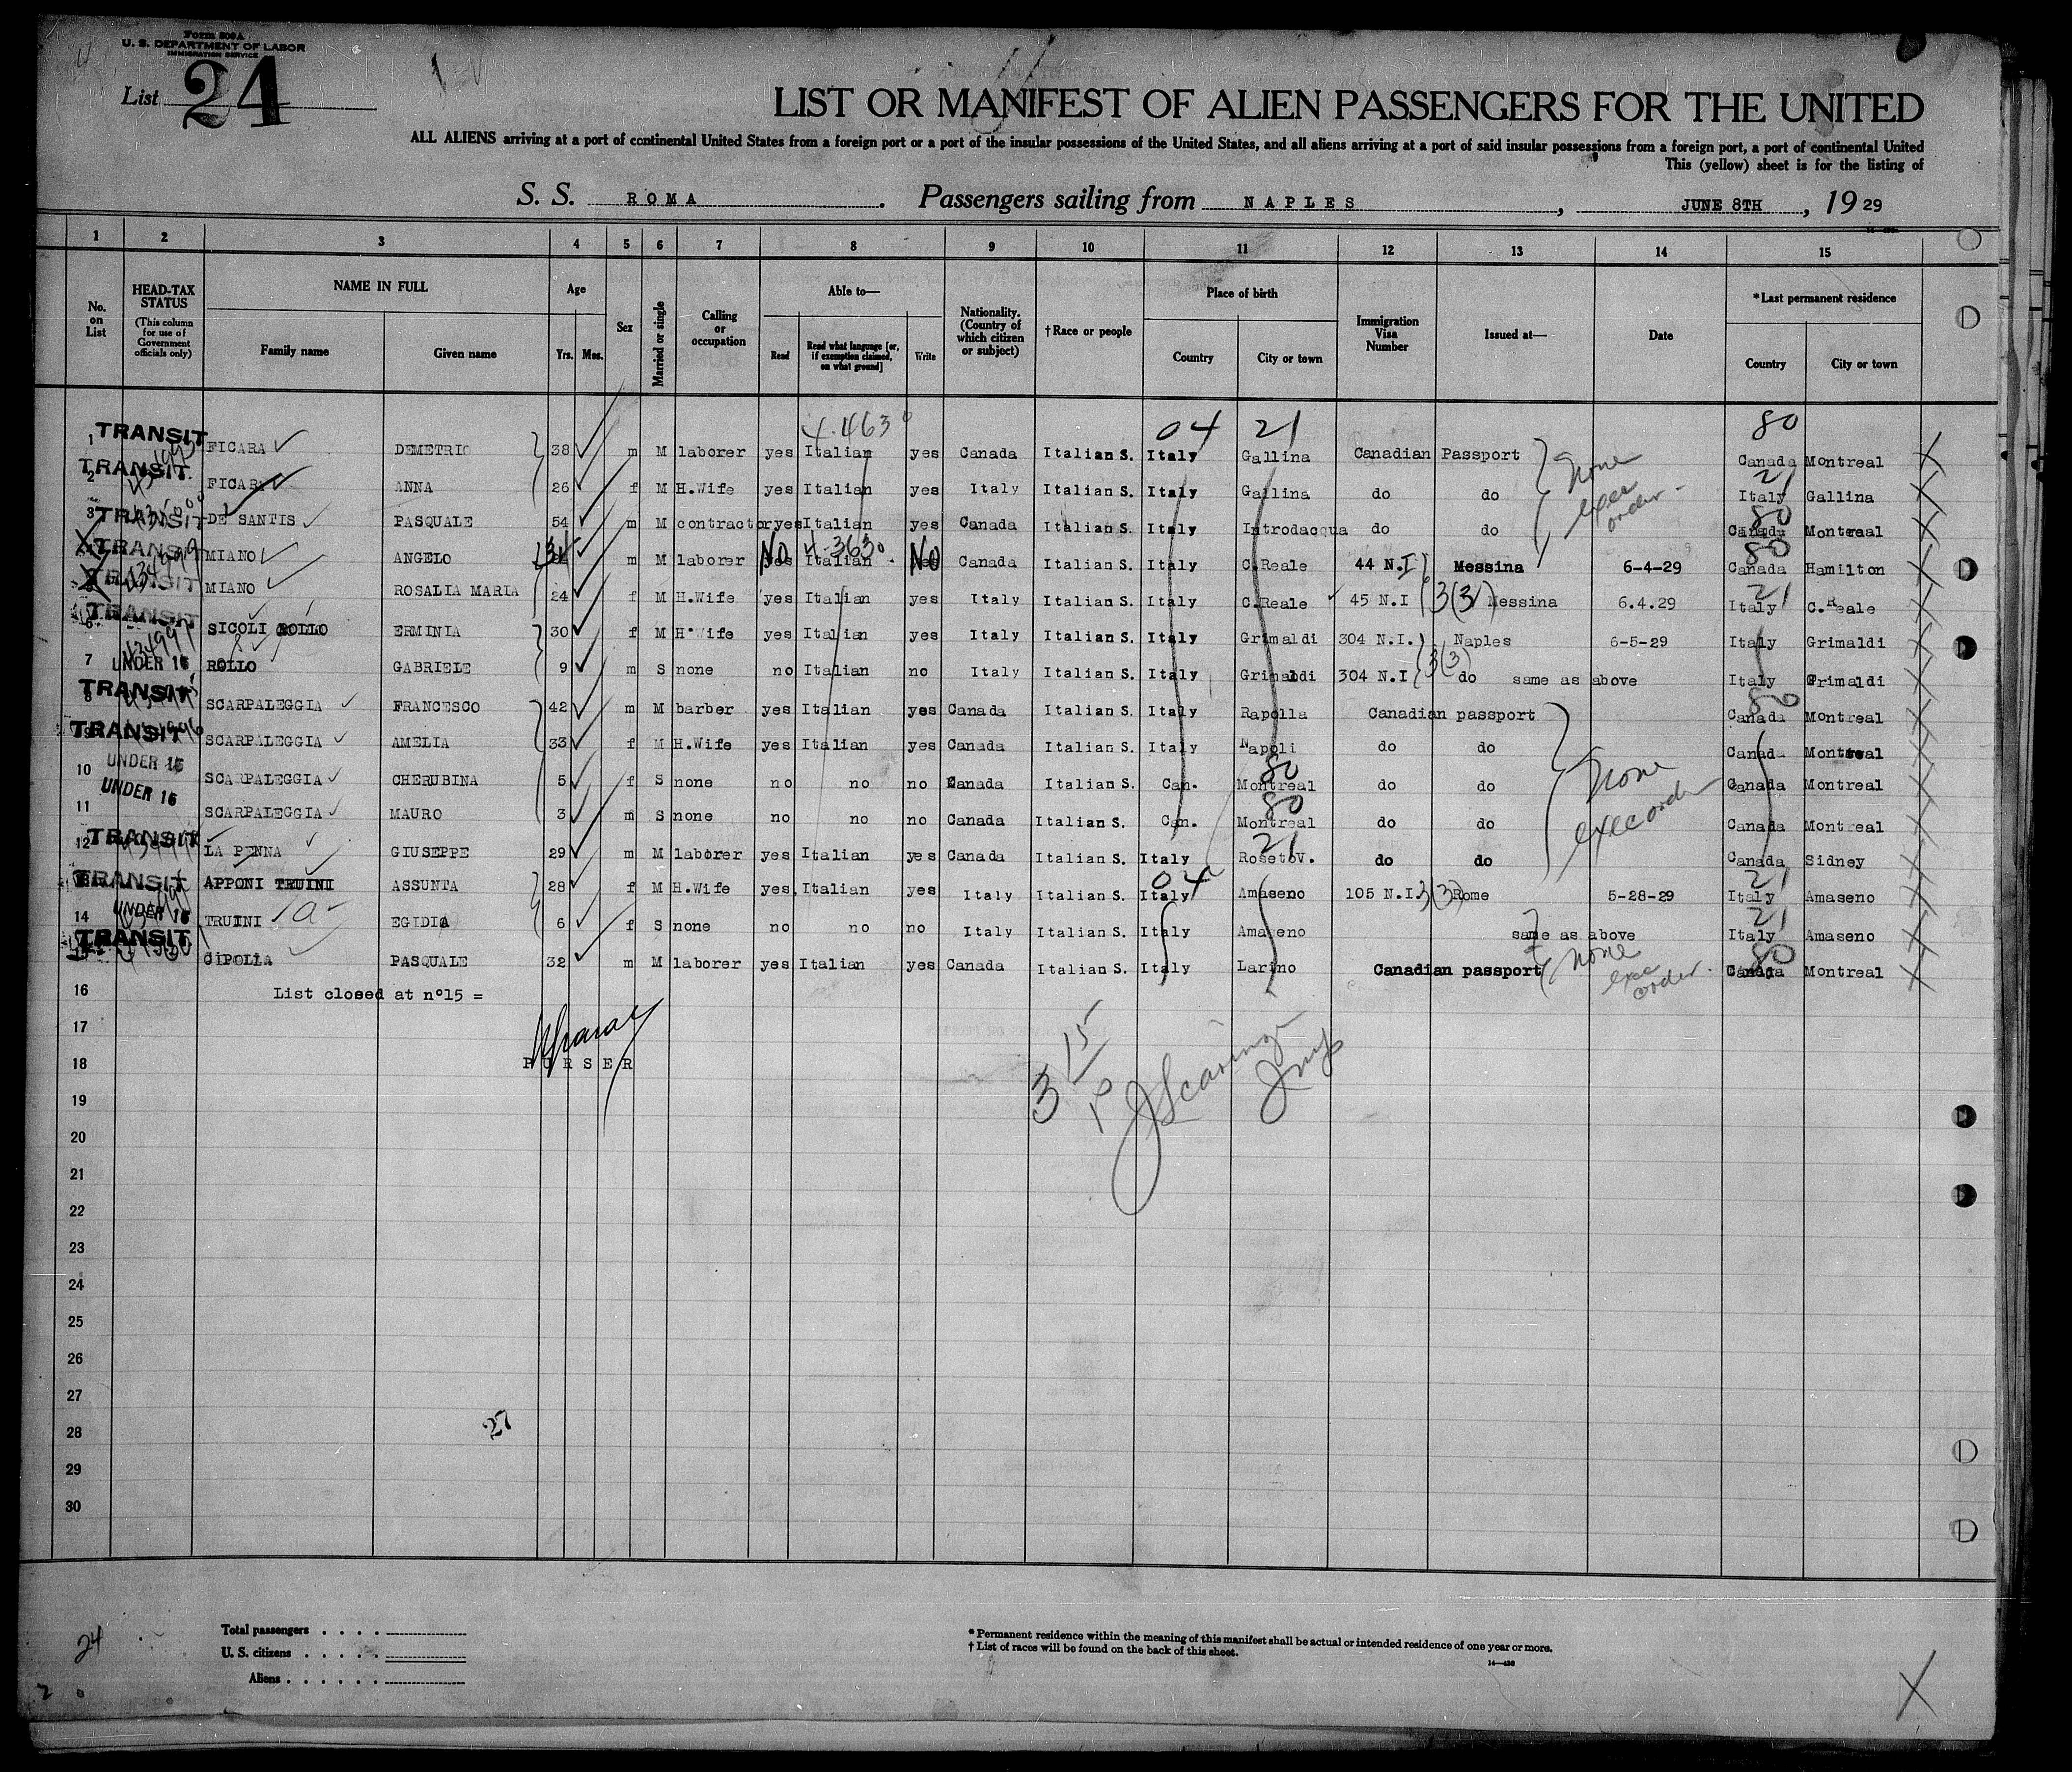 Form 500A
U. S. DEPARTMENT OF LABOR
IMMIGRATION SERVICE
List 24
LIST OR MANIFEST OF ALIEN PASSENGERS FOR THE UNITED
ALL ALIENS arriving at a port of continental United States from a foreign port or a port of the insular possessions of the United States, and all aliens arriving at a port of said insular possessions from a foreign port, a port of continental United
This (yellow) sheet is for the listing of
S. S. ROMA. Passengers sailing from NAPLES, JUNE 8TH, 1929
1 2 3 4 5 6 7 8 9 10 11 12 13 14 15
No. on List
HEAD-TAX STATUS (This column for use of Government officials only)
NAME IN FULL
Family name Given name
Age
Yrs. Mos.
Sex
Married or single
Calling or occupation
Able to—
Read Read what language [or, if exemption claimed, on what ground] Write
Nationality. (Country of which citizen or subject)
†Race or people
Place of birth
Country City or town
Immigration Visa Number
Issued at—
Date
*Last permanent residence
Country City or town
04 21 80
1 TRANSIT FICARA DEMETRIO 38 m M laborer yes Italian yes Canada Italian S. Italy Gallina Canadian Passport none Canada Montreal
2 TRANSIT FICARA ANNA 26 f M H.Wife yes Italian yes Italy Italian S. Italy Gallina do do exec order 21 Italy Gallina
3 TRANSIT DE SANTIS PASQUALE 54 m M contractor yes Italian yes Canada Italian S. Italy Introdacqua do do 80 Canada Montreal
TRANSIT MIANO ANGELO m M laborer No Italian No Canada Italian S. Italy C.Reale 44 N.I Messina 6-4-29 80 Canada Hamilton
TRANSIT MIANO ROSALIA MARIA 24 f M H.Wife yes Italian yes Italy Italian S. Italy C.Reale 45 N.I 3(3) Messina 6.4.29 21 Italy C.Reale
6 TRANSIT SICOLI ROLLO ERMINIA 30 f M H.Wife yes Italian yes Italy Italian S. Italy Grimaldi 304 N.I. Naples 6-5-29 Italy Grimaldi
7 UNDER 16 ROLLO GABRIELE 9 m S none no Italian no Italy Italian S. Italy Grimaldi 304 N.I 3(3) do same as above Italy Grimaldi
8 TRANSIT SCARPALEGGIA FRANCESCO 42 m M barber yes Italian yes Canada Italian S. Italy Rapolla Canadian passport 80 Canada Montreal
9 TRANSIT SCARPALEGGIA AMELIA 33 f M H.Wife yes Italian yes Canada Italian S. Italy Napoli do do Canada Montreal
10 UNDER 16 SCARPALEGGIA CHERUBINA 5 f S none no no no Canada Italian S. Can. 80 Montreal do do none Canada Montreal
11 UNDER 16 SCARPALEGGIA MAURO 3 m S none no no no Canada Italian S. Can. 80 Montreal do do exec order Canada Montreal
12 TRANSIT LA PENNA GIUSEPPE 29 m M laborer yes Italian yes Canada Italian S. Italy 21 Roseto V. do do Canada Sidney
TRANSIT APPONI TRUINI ASSUNTA 28 f M H.Wife yes Italian yes Italy Italian S. 04 Italy Amaseno 105 N.I. 3(3) Rome 5-28-29 21 Italy Amaseno
14 UNDER 16 TRUINI EGIDIA 6 f S none no no no Italy Italian S. Italy Amaseno same as above 21 Italy Amaseno
TRANSIT CIPOLLA PASQUALE 32 m M laborer yes Italian yes Canada Italian S. Italy Larino Canadian passport none exec order 80 Canada Montreal
16 List closed at n°15 =
17
18 PURSER
19
20
21
22
23
24
25
26
27
28
29
30
27
24
Total passengers
U. S. citizens
Aliens
* Permanent residence within the meaning of this manifest shall be actual or intended residence of one year or more.
† List of races will be found on the back of this sheet.